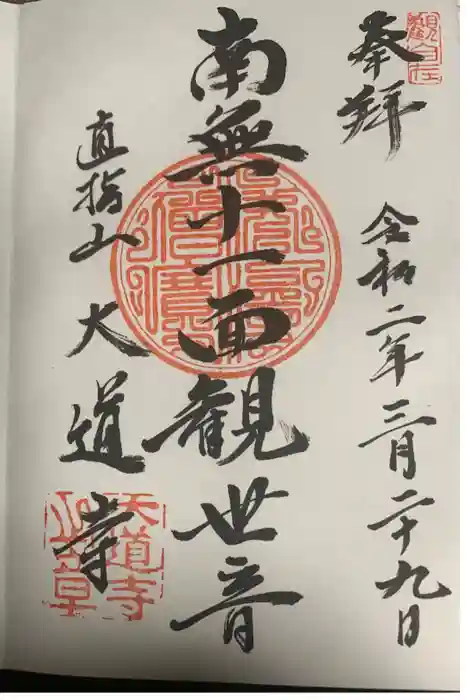 奉拝
令和二年三月二十九日
南無十一面観世音
直指山
大道寺
觀自在